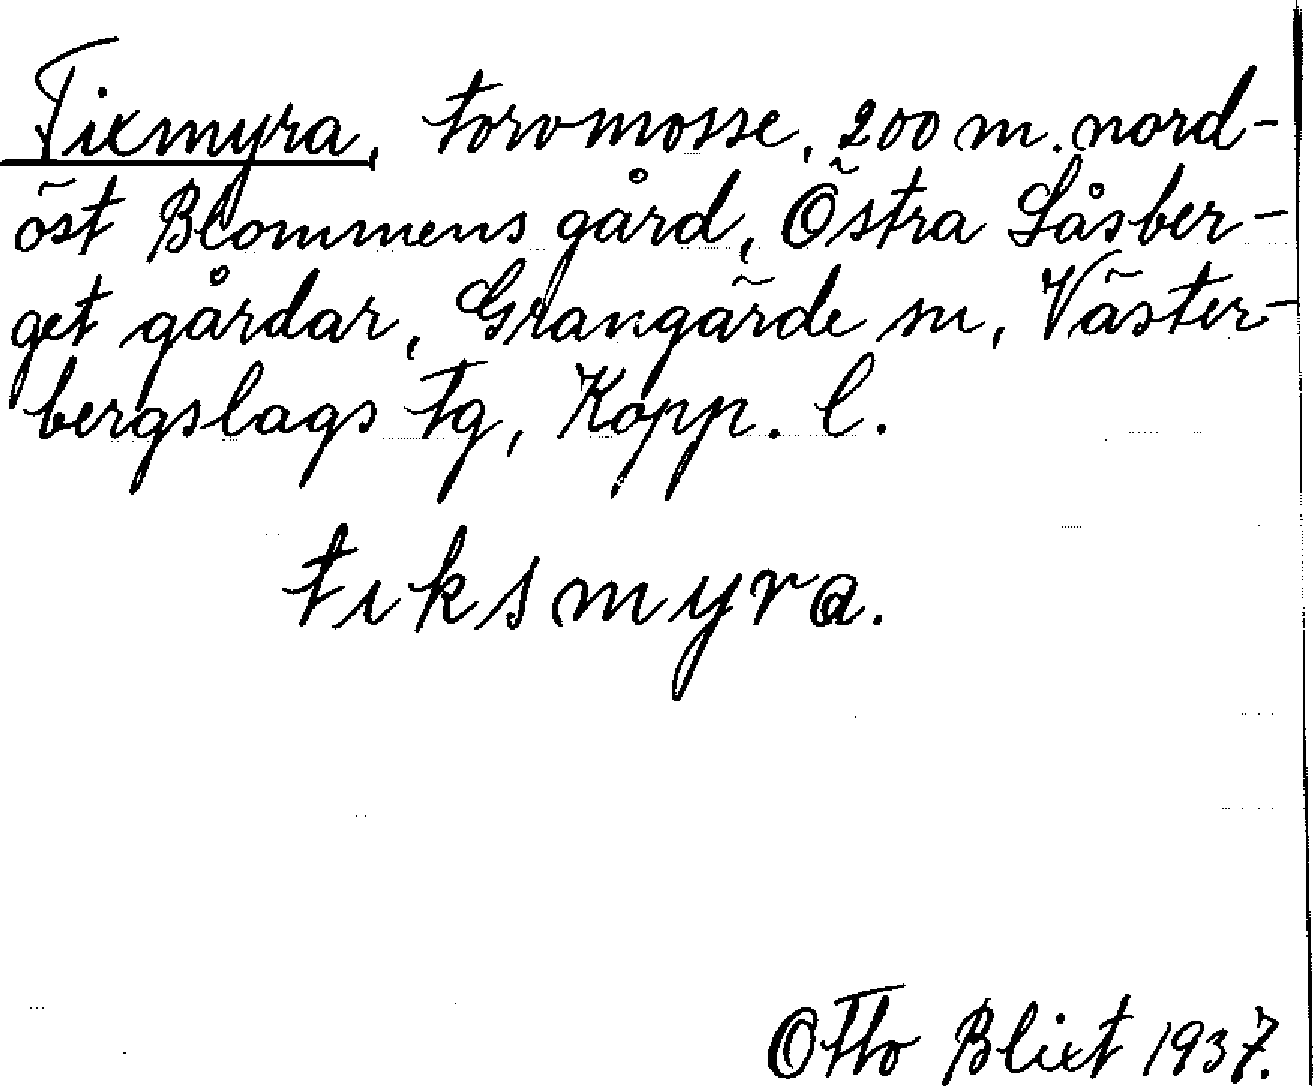 Tixmyra, torvmosse, 200 m. nord-
öst Blommens gård, Östra Låsber-
get gårdar, Grangärde sn, Väster-
bergslags tg, Kopp. l.
tıksmyra.
Otto Blixt 1937.